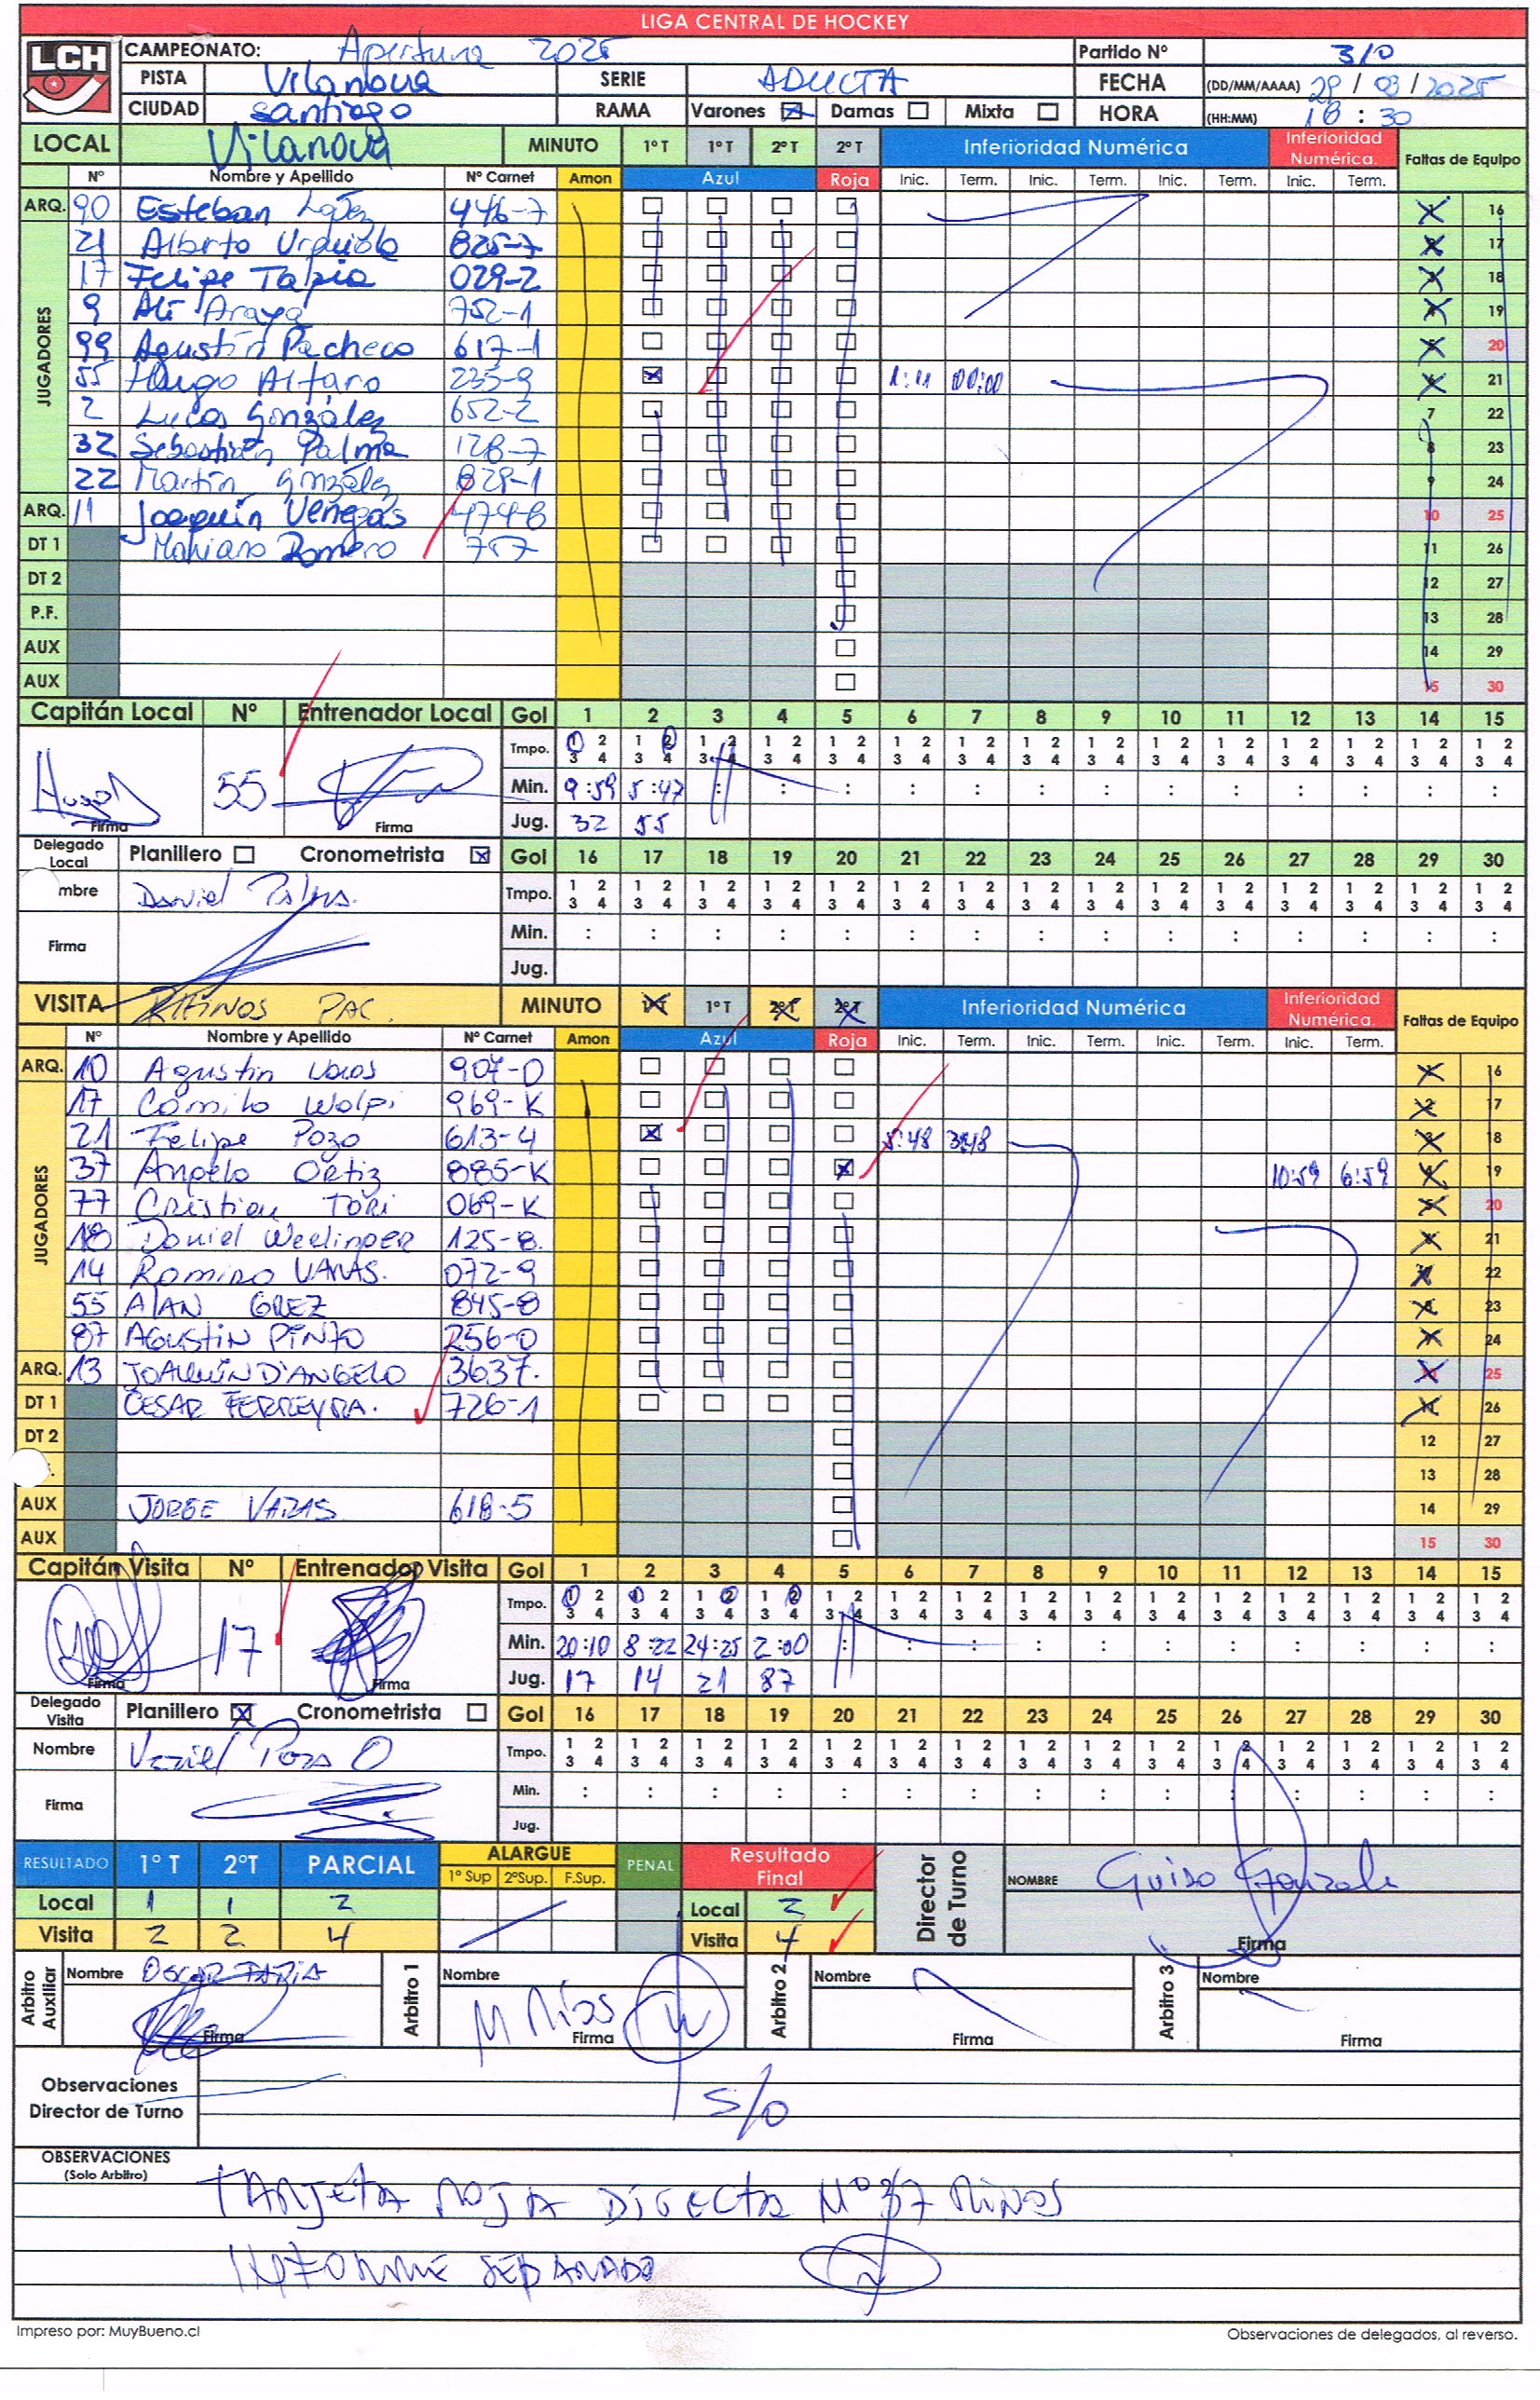 LIGA CENTRAL DE HOCKEY
LCH
CAMPEONATO: Apertura 2025 Partido Nº 310
PISTA Vilanova SERIE ADULTA FECHA (DD/MM/AAAA) 29 / 03 / 2025
CIUDAD santiago RAMA Varones Damas Mixta HORA (HH:MM) 18 : 30
LOCAL Vilanova MINUTO 1º T 1º T 2º T 2º T Inferioridad Numérica Inferioridad Numérica. Faltas de Equipo
Nº Nombre y Apellido Nº Carnet Amon Azul Roja Inic. Term. Inic. Term. Inic. Term. Inic. Term.
ARQ. 90 Esteban López 446-7 1 16
JUGADORES
21 Alberto Urquiola 825-7 2 17
17 Felipe Tapia 029-2 3 18
9 Ali Araya 752-1 4 19
99 Agustín Pacheco 617-1 5 20
55 Hugo Alfaro 235-9 1:11 00:00 6 21
2 Lucas González 652-2 7 22
32 Sebastián Palma 128-7 8 23
22 Martín González 829-1 9 24
ARQ. 11 Joaquín Venegas 474-8 10 25
DT 1 Mariano Romero 757 11 26
DT 2 12 27
P.F. 13 28
AUX 14 29
AUX 15 30
Capitán Local Nº Entrenador Local Gol 1 2 3 4 5 6 7 8 9 10 11 12 13 14 15
Tmpo. 1 2 3 4 1 2 3 4 1 2 3 4 1 2 3 4 1 2 3 4 1 2 3 4 1 2 3 4 1 2 3 4 1 2 3 4 1 2 3 4 1 2 3 4 1 2 3 4 1 2 3 4 1 2 3 4 1 2 3 4
55 Min. 9:59 5:47 : : : : : : : : : : : : :
Firma Firma Jug. 32 55
Delegado Local Planillero Cronometrista Gol 16 17 18 19 20 21 22 23 24 25 26 27 28 29 30
mbre Daniel Palma. Tmpo. 1 2 3 4 1 2 3 4 1 2 3 4 1 2 3 4 1 2 3 4 1 2 3 4 1 2 3 4 1 2 3 4 1 2 3 4 1 2 3 4 1 2 3 4 1 2 3 4 1 2 3 4 1 2 3 4 1 2 3 4
Firma Min. : : : : : : : : : : : : : : :
Jug.
VISITA PAC. MINUTO 1º T 1º T 2º T 2º T Inferioridad Numérica Inferioridad Numérica. Faltas de Equipo
Nº Nombre y Apellido Nº Carnet Amon Azul Roja Inic. Term. Inic. Term. Inic. Term. Inic. Term.
ARQ. 10 Agustin 907-0 1 16
JUGADORES
17 Camilo Wolpi 969-K 2 17
21 Felipe Pozo 613-4 5:48 3:48 3 18
37 Angelo Ortiz 885-K 10:59 6:59 4 19
77 Cristian Tori 069-K 5 20
18 Daniel Weelinper 125-8. 6 21
14 Ramiro VARAS. 072-9 7 22
55 AlAN GREZ 845-8 8 23
87 AGUSTIN PINTO 256-0 9 24
ARQ. 13 JOAQUÍN D'ANGELO 3637. 10 25
DT 1 CESAR FERREYRA. 726-1 11 26
DT 2 12 27
13 28
AUX JORGE VARAS 618-5 14 29
AUX 15 30
Capitán Visita Nº Entrenador Visita Gol 1 2 3 4 5 6 7 8 9 10 11 12 13 14 15
Tmpo. 1 2 3 4 1 2 3 4 1 2 3 4 1 2 3 4 1 2 3 4 1 2 3 4 1 2 3 4 1 2 3 4 1 2 3 4 1 2 3 4 1 2 3 4 1 2 3 4 1 2 3 4 1 2 3 4 1 2 3 4
17 Min. 20:10 8:22 24:25 2:00 : : : : : : : : : : :
Firma Firma Jug. 17 14 21 87
Delegado Visita Planillero Cronometrista Gol 16 17 18 19 20 21 22 23 24 25 26 27 28 29 30
Nombre Pozo O Tmpo. 1 2 3 4 1 2 3 4 1 2 3 4 1 2 3 4 1 2 3 4 1 2 3 4 1 2 3 4 1 2 3 4 1 2 3 4 1 2 3 4 1 2 3 4 1 2 3 4 1 2 3 4 1 2 3 4 1 2 3 4
Firma Min. : : : : : : : : : : : : : : :
Jug.
RESULTADO 1º T 2ºT PARCIAL ALARGUE 1º Sup 2ºSup. F.Sup. PENAL Resultado Final Director de Turno NOMBRE Guiso Gonzalez
Local 1 1 2 Local 2
Visita 2 2 4 Visita 4 Firma
Arbitro Auxiliar Nombre OSCAR TAPIA Arbitro 1 Nombre Arbitro 2 Nombre Arbitro 3 Nombre
Firma M Ríos Firma Firma Firma
Observaciones Director de Turno S/O
OBSERVACIONES
(Solo Arbitro)
TARJETA ROJA DIRECTA Nº 37 RINOS
INFORME SEPARADO
Impreso por: MuyBueno.cl Observaciones de delegados, al reverso.